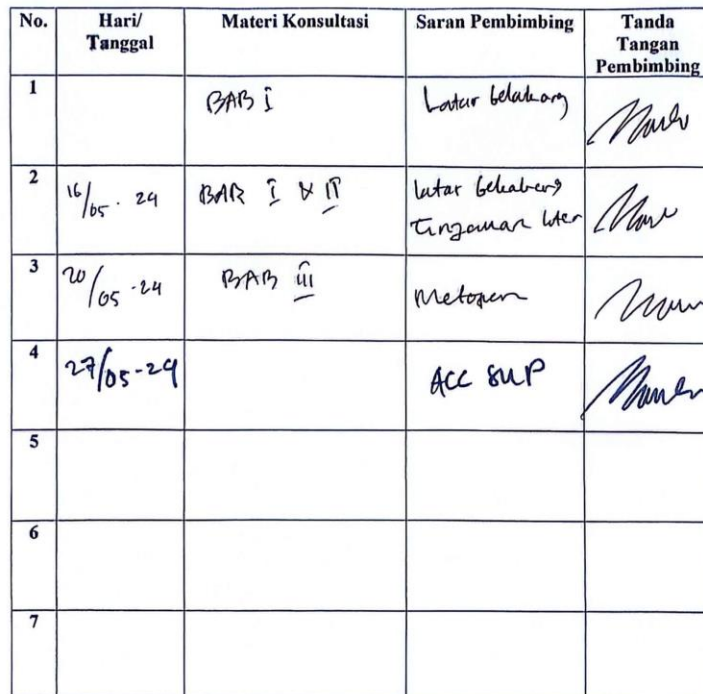 No. Hari/ Tanggal Materi Konsultasi Saran Pembimbing Tanda Tangan Pembimbing
1 BAB I Latar belakang
2 16/05-24 BAB I & II Latar belakang
Tinjauan liter
3 20/05-24 BAB III Metopen
4 27/05-24 ACC SUP
5
6
7